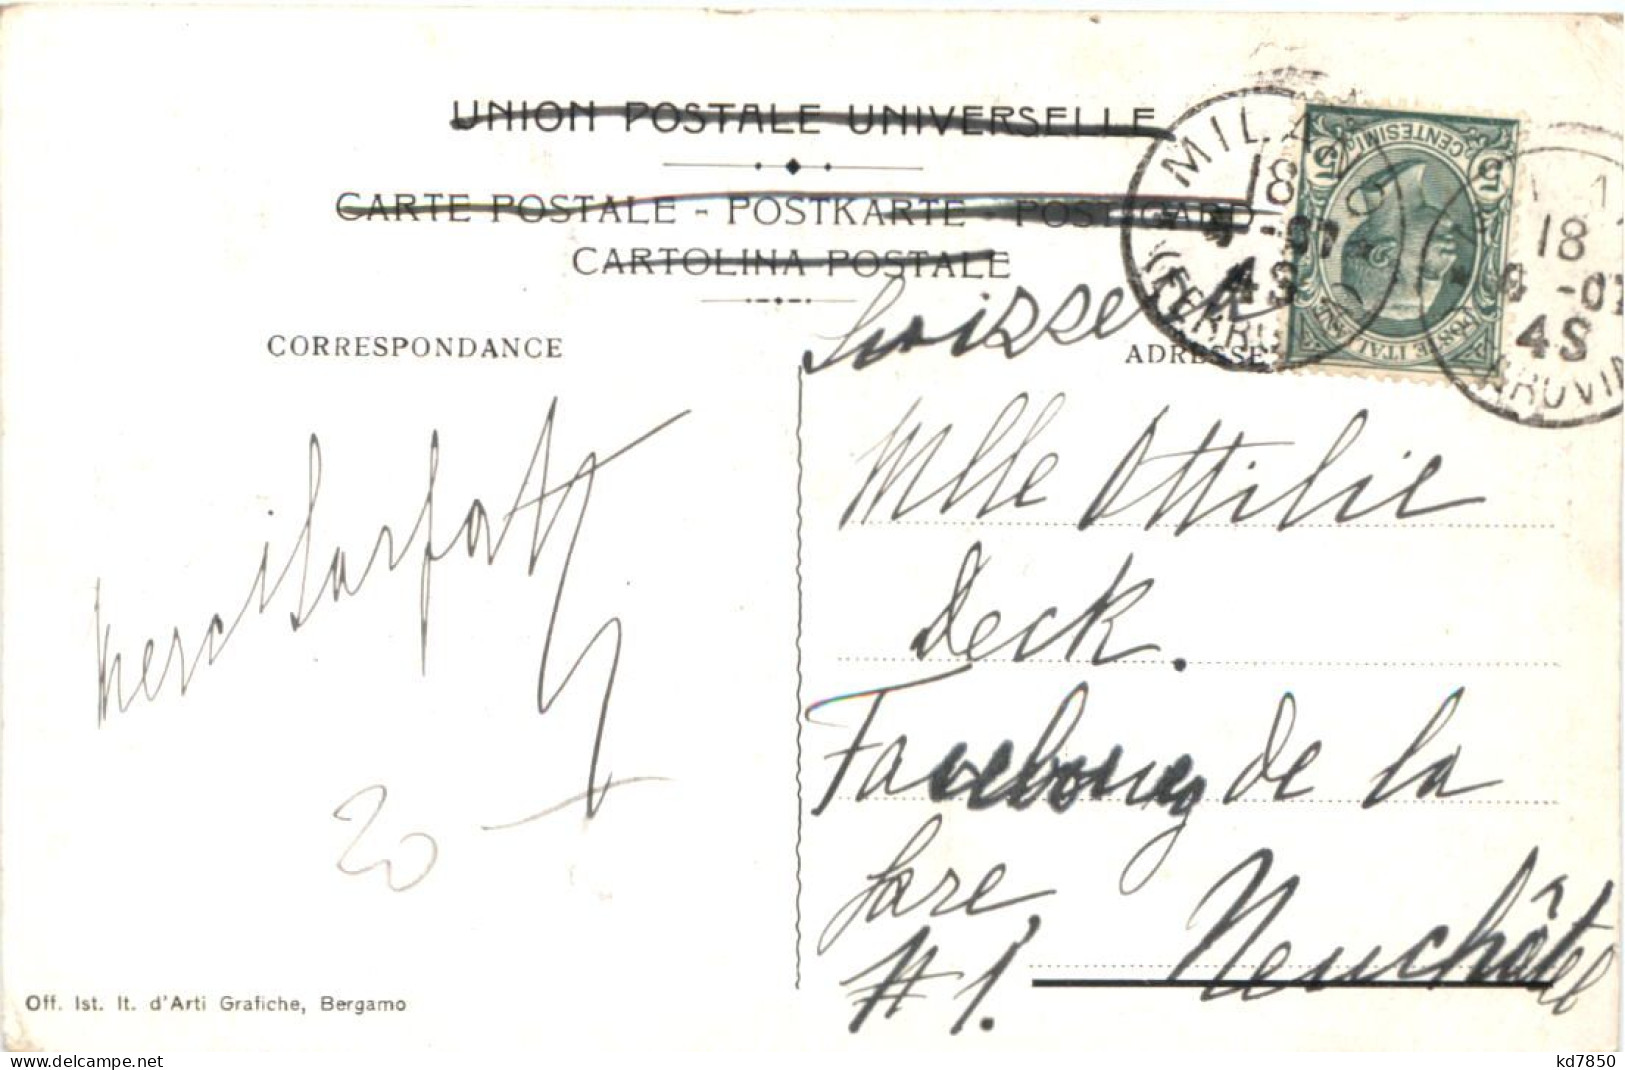 UNION POSTALE UNIVERSELLE
CARTE POSTALE - POSTKARTE - POST CARD
CARTOLINA POSTALE
CORRESPONDANCE
ADRESSE
CENTESIMI
POSTE ITALIANE
MILANO
18
-07
4S
18
-07
4S
Suisse
Mlle Ottilie
Deck.
Faubourg de la
Gare,
# 1. Neuchâtel
merci Sarfatti
20
Off. Ist. It. d'Arti Grafiche, Bergamo
delcampe.net
kd7850